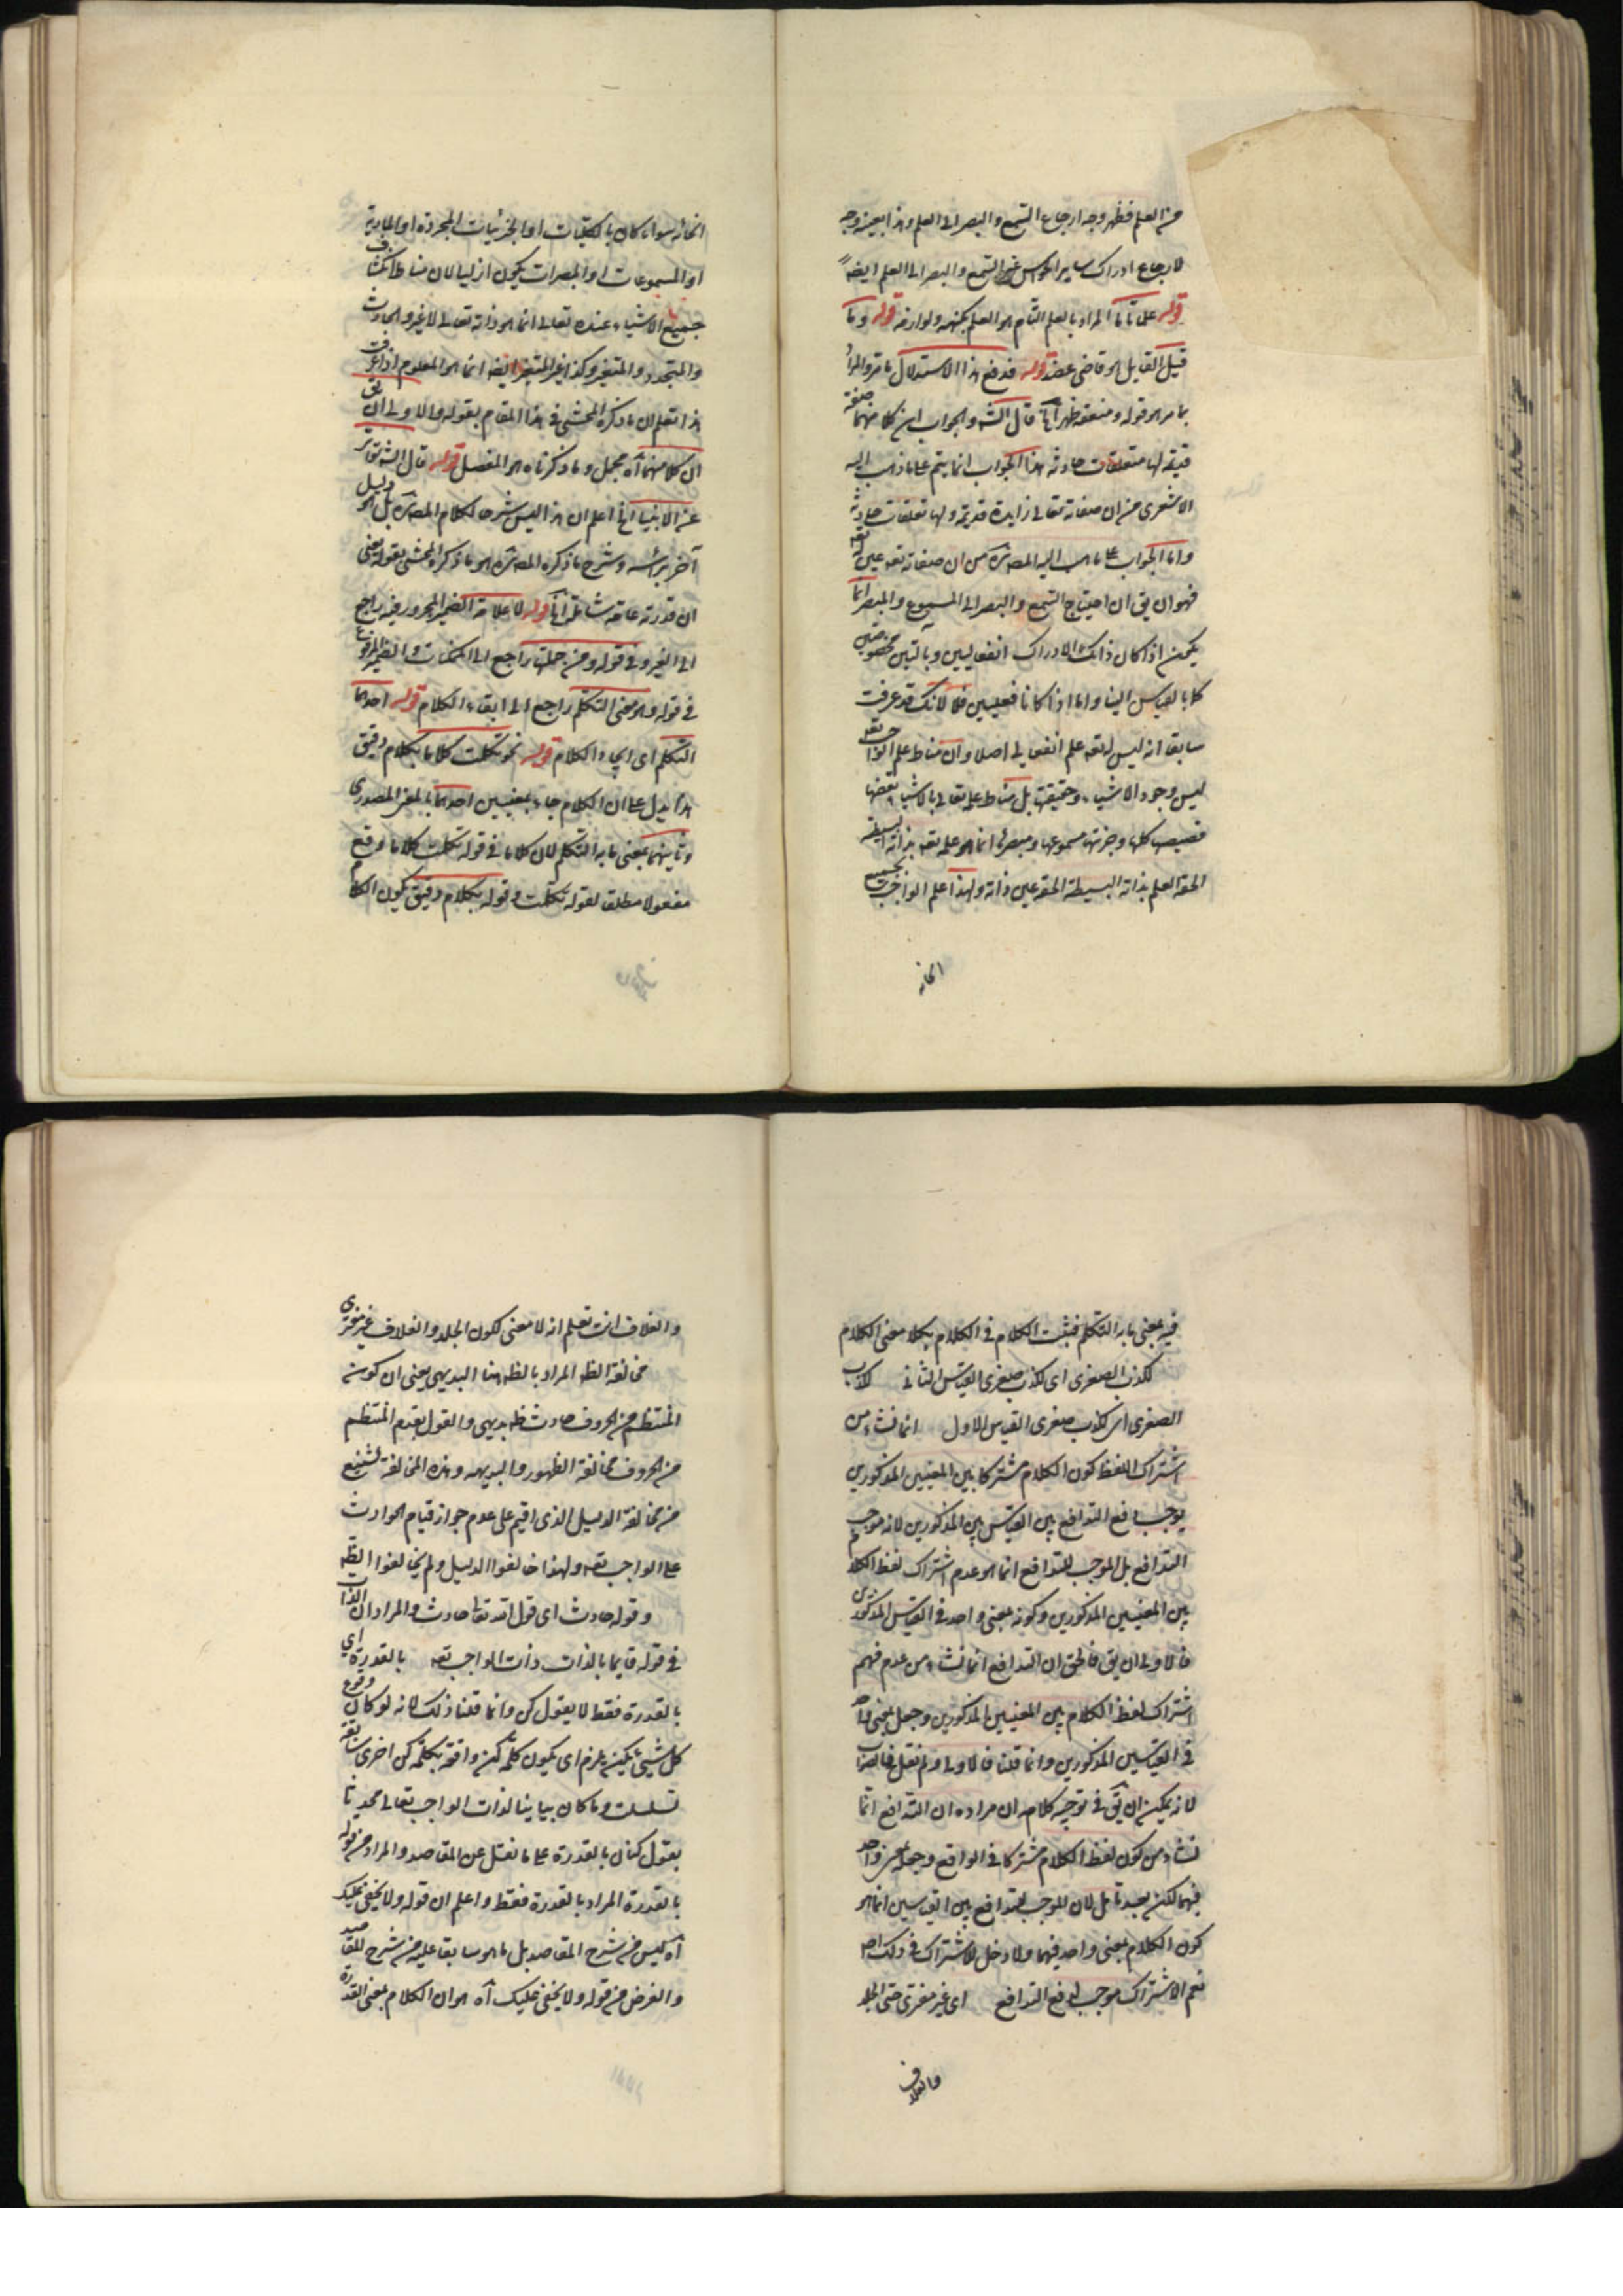 من العلم فظهر وجه ارجاع السمع والبصر الى العلم وهذا بعينه وجه
لارجاع ادراك ساير الحواس غير السمع والبصر الى العلم ايضا
قوله علما تاما المراد بالعلم التام هو العلم بكنهه ولوازمه قوله وما
قيل القايل هو قاضى عضد قوله فدفع هذا الاستدلال بما مر والمراد
بما مر هو قوله وضعفه ظهر آه قال الشه والجواب ان كلا منهما صفة
قديمة لها متعلقات حادثه هذا الجواب انما يتم على ما ذهب اليه
الاشعرى من ان صفاته تعالى زايدة قديمة ولها تعلقات حادثة
واما الجواب على ما ذهب اليه المصه من ان صفاته تعه عين
فهو ان يق ان احتياج السمع والبصر الى المسموع والمبصر انما
يمكن اذا كان ذانك الادراك انفعاليين وبآلتين مخصوصتين
كما بالقياس الينا واما اذا كانا فعليين فلا لانك قد عرفت
سابقا انه ليس له تعه علم انفعالى اصلا وان مناط علم الواجب تعه
ليس وجود الاشياء وحقيقتها بل مناط علمه تعالى بالاشياء بعضها
كلها وجزئها مسموعها ومبصرها انما هو علمه تعه بذاته البسيطة
الحقه العلم بذاته البسيطة الحقه عين ذاته ولهذا علم الواجب بجميع
انحائه
انحائه سواء كان بالكليات او الجزئيات المجردة او المادية
او المسموعات او المبصرات يكون ازليا لان مناط انكشاف
جميع الاشياء عنده تعالى انما هو ذاته تعالى لا غير والحادث
والمتجدد والمتغير وكذا غير المتغير ايضا انما هو المعلوم اذا عرفت
هذا تعلم ان ما ذكره المحشى فى هذا المقام بقوله والاولى ان يق
ان كلا منهما آه مجمل وما ذكرناه هو المفصل قوله قال الشه تواتر
عن الانبياء الخ اعلم ان هذا ليس شرحا لكلام المصه بل هو دليل
آخر برأسه وشرح ما ذكره المصه هو ما ذكره المحشى بقوله يعنى
ان قدرته عامة شاملة الخ قوله لا علامة الضمير المجرور فيه راجع
الى الغير وفى قوله ومن جملتها راجع الى الممكنات والضمير المرفوع
فى قوله وهو معنى التكلم راجع الى القاء الكلام قوله احدهما
التكلم اى ايجاد الكلام قوله نحو تكلمت كلاما بكلام دقيق
هذا يدل على ان الكلام جاء بمعنيين احدهما بالمعنى المصدرى
وثانيهما بمعنى ما به التكلم لان كلاما فى قوله تكلمت كلاما وقع
مفعولا مطلقا لقوله تكلمت وقوله بكلام دقيق يكون الكلام
فيه بمعنى ما به التكلم فثبت الكلام فى الكلام بكلا معنى الكلام
لكذب الصغرى اى لكذب صغرى القياس الثانى لكذب
الصغرى اى لكذب صغرى القياس الاول انما نشاء من
اشتراك اللفظ كون الكلام مشتركا بين المعنيين المذكورين
يوجب دفع التدافع بين القياسين المذكورين لا انه موجب
التدافع بل الموجب للتدافع انما هو عدم اشتراك لفظ الكلام
بين المعنيين المذكورين وكونه بمعنى واحد فى القياسين المذكورين
فالاولى ان يق فالحق ان التدافع انما نشاء من عدم فهم
اشتراك لفظ الكلام بين المعنيين المذكورين وجعل بمعنى واحد
فى القياسين المذكورين وانما قلنا فالاولى ولم نقل فالصواب
لانه يمكن ان يق فى توجيه كلامه ان مراده ان التدافع انما
نشاء من كون لفظ الكلام مشتركا فى الواقع وجعله بمعنى واحد
فيهما لكن بعد تامل لان الموجب للتدافع بين القياسين انما هو
كون الكلام بمعنى واحد فيهما ولا دخل للاشتراك فى ذلك اصلا
نعم الاشتراك موجب لدفع التدافع اى غير مفترى حتى الجلد
والغلاف
والغلاف انت تعلم انه لا معنى لكون الجلد والغلاف غير مفترى
مخالفة الظه المراد بالظه هنا البديهى يعنى ان كون
المنتظم من الحروف حادث ظه بديهى والقول بقدم المنتظم
من الحروف مخالفة الظهور والبديهه وهذه المخالفة اشنع
من مخالفة الدليل الذى اقيم على عدم جواز قيام الحوادث
على الواجب تعه ولهذا خالفوا الدليل ولم يخالفوا الظه
وقوله حادث اى قول الله تعالى حادث والمراد بالذات
فى قوله قايما بالذات ذات الواجب تعه بالقدرة اى
بالقدرة فقط لا بقول كن وانما قلنا ذلك لانه لو كان وقوع
كل شيئ بكن يلزم اى يكون كلمة كن واقعة بكلمة كن اخرى سابقة
تسلسلت وما كان بيانيا لذات الواجب تعالى محدثا
بقول كن كان بالقدرة على ما نقل عن المقاصد والمراد من قوله
بالقدرة المراد بالقدرة فقط واعلم ان قوله ولا يخفى عليك
آه ليس من شرح المقاصد بل ما هو سابقا عليه من شرح المقاصد
والغرض من قوله ولا يخفى عليك آه هو ان الكلام بمعنى القدرة